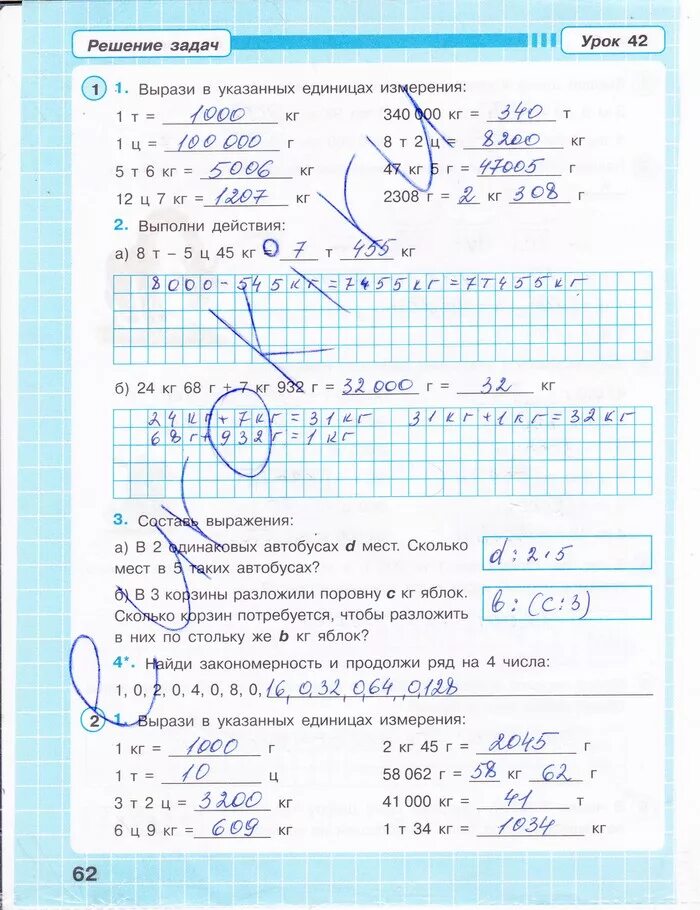 Решение задач Урок 42
1 1. Вырази в указанных единицах измерения:
1 т = 1000 кг 340 000 кг = 340 т
1 ц = 100 000 г 8 т 2 ц = 8200 кг
5 т 6 кг = 5006 кг 47 кг 5 г = 47005 г
12 ц 7 кг = 1207 кг 2308 г = 2 кг 308 г
2. Выполни действия:
а) 8 т – 5 ц 45 кг = 7 т 455 кг
8000 - 545 кг = 7455 кг = 7т 455 кг
б) 24 кг 68 г + 7 кг 932 г = 32 000 г = 32 кг
24 кг + 7 кг = 31 кг 31 кг + 1 кг = 32 кг
68 г + 932 г = 1 кг
3. Составь выражения:
а) В 2 одинаковых автобусах d мест. Сколько
мест в 5 таких автобусах?
d : 2 · 5
б) В 3 корзины разложили поровну c кг яблок.
Сколько корзин потребуется, чтобы разложить
в них по стольку же b кг яблок?
b : (c : 3)
4*. Найди закономерность и продолжи ряд на 4 числа:
1, 0, 2, 0, 4, 0, 8, 0, 16, 0, 32, 0, 64, 0, 128
2 1. Вырази в указанных единицах измерения:
1 кг = 1000 г 2 кг 45 г = 2045 г
1 т = 10 ц 58 062 г = 58 кг 62 г
3 т 2 ц = 3200 кг 41 000 кг = 41 т
6 ц 9 кг = 609 кг 1 т 34 кг = 1034 кг
62